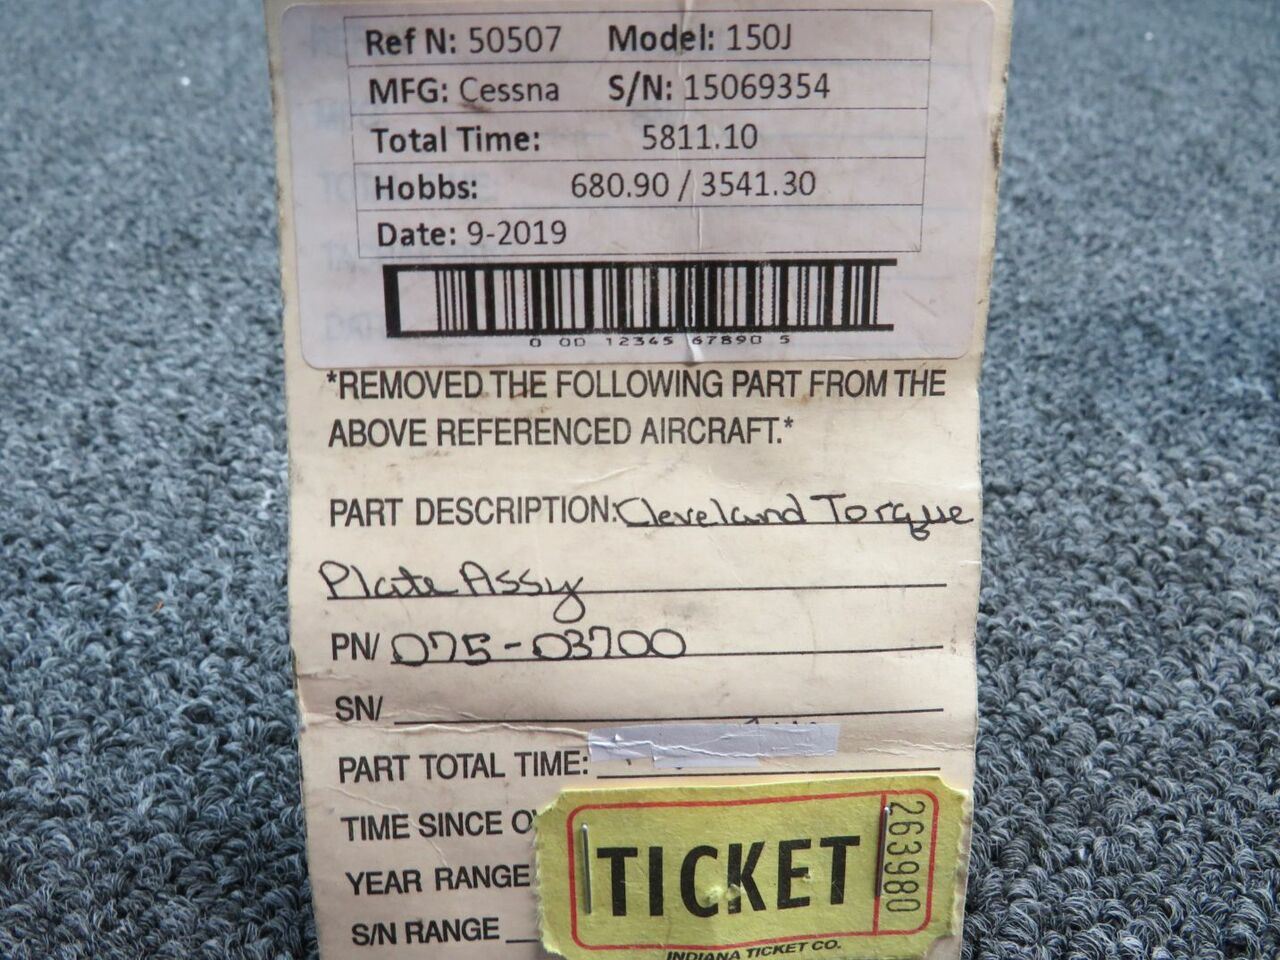 Ref N: 50507 Model: 150J
MFG: Cessna S/N: 15069354
Total Time: 5811.10
Hobbs: 680.90 / 3541.30
Date: 9-2019
0 00 12345 67890 5
*REMOVED THE FOLLOWING PART FROM THE
ABOVE REFERENCED AIRCRAFT.*
PART DESCRIPTION: Cleveland Torque
Plate Assy
PN/ 075-03700
SN/
PART TOTAL TIME:
TIME SINCE O
YEAR RANGE
S/N RANGE
TICKET
263980
INDIANA TICKET CO.